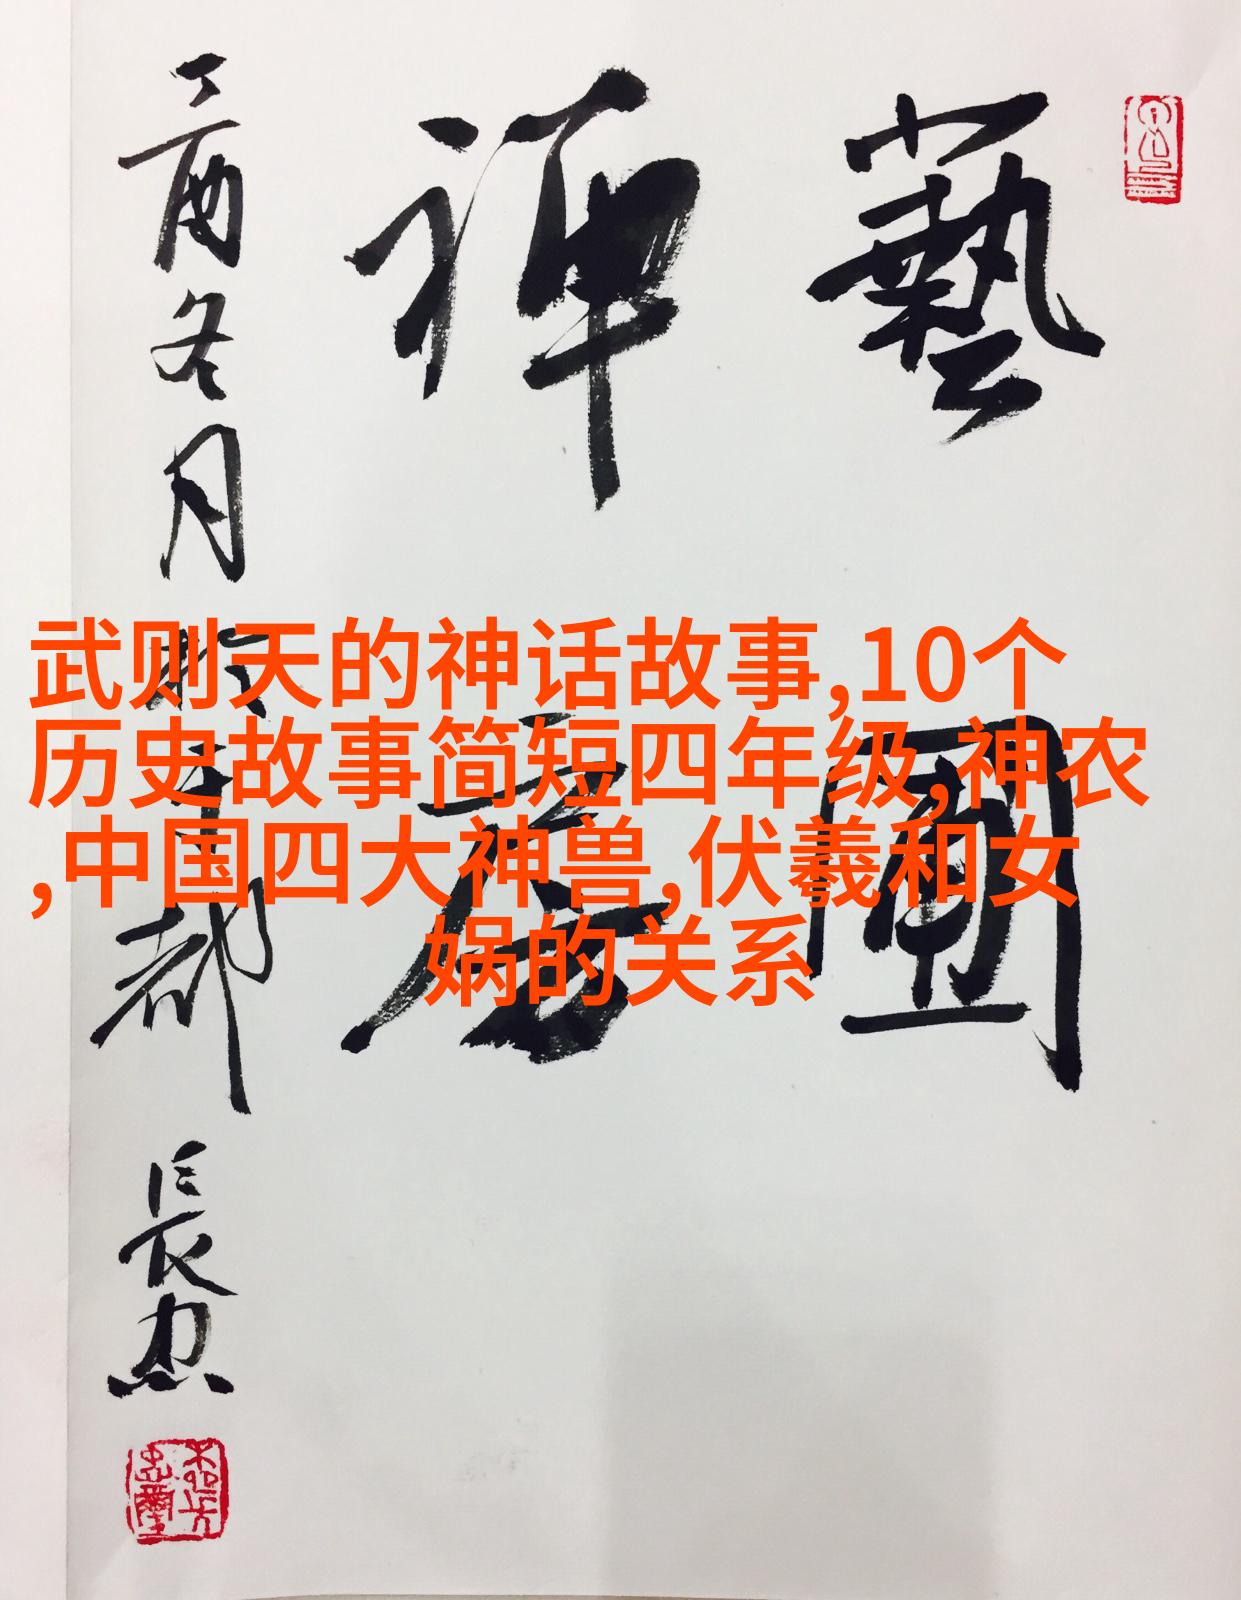 藝圃
禅房
丁酉冬月於京都
長忠
武则天的神话故事,10个
历史故事简短四年级,神农
,中国四大神兽,伏羲和女
娲的关系